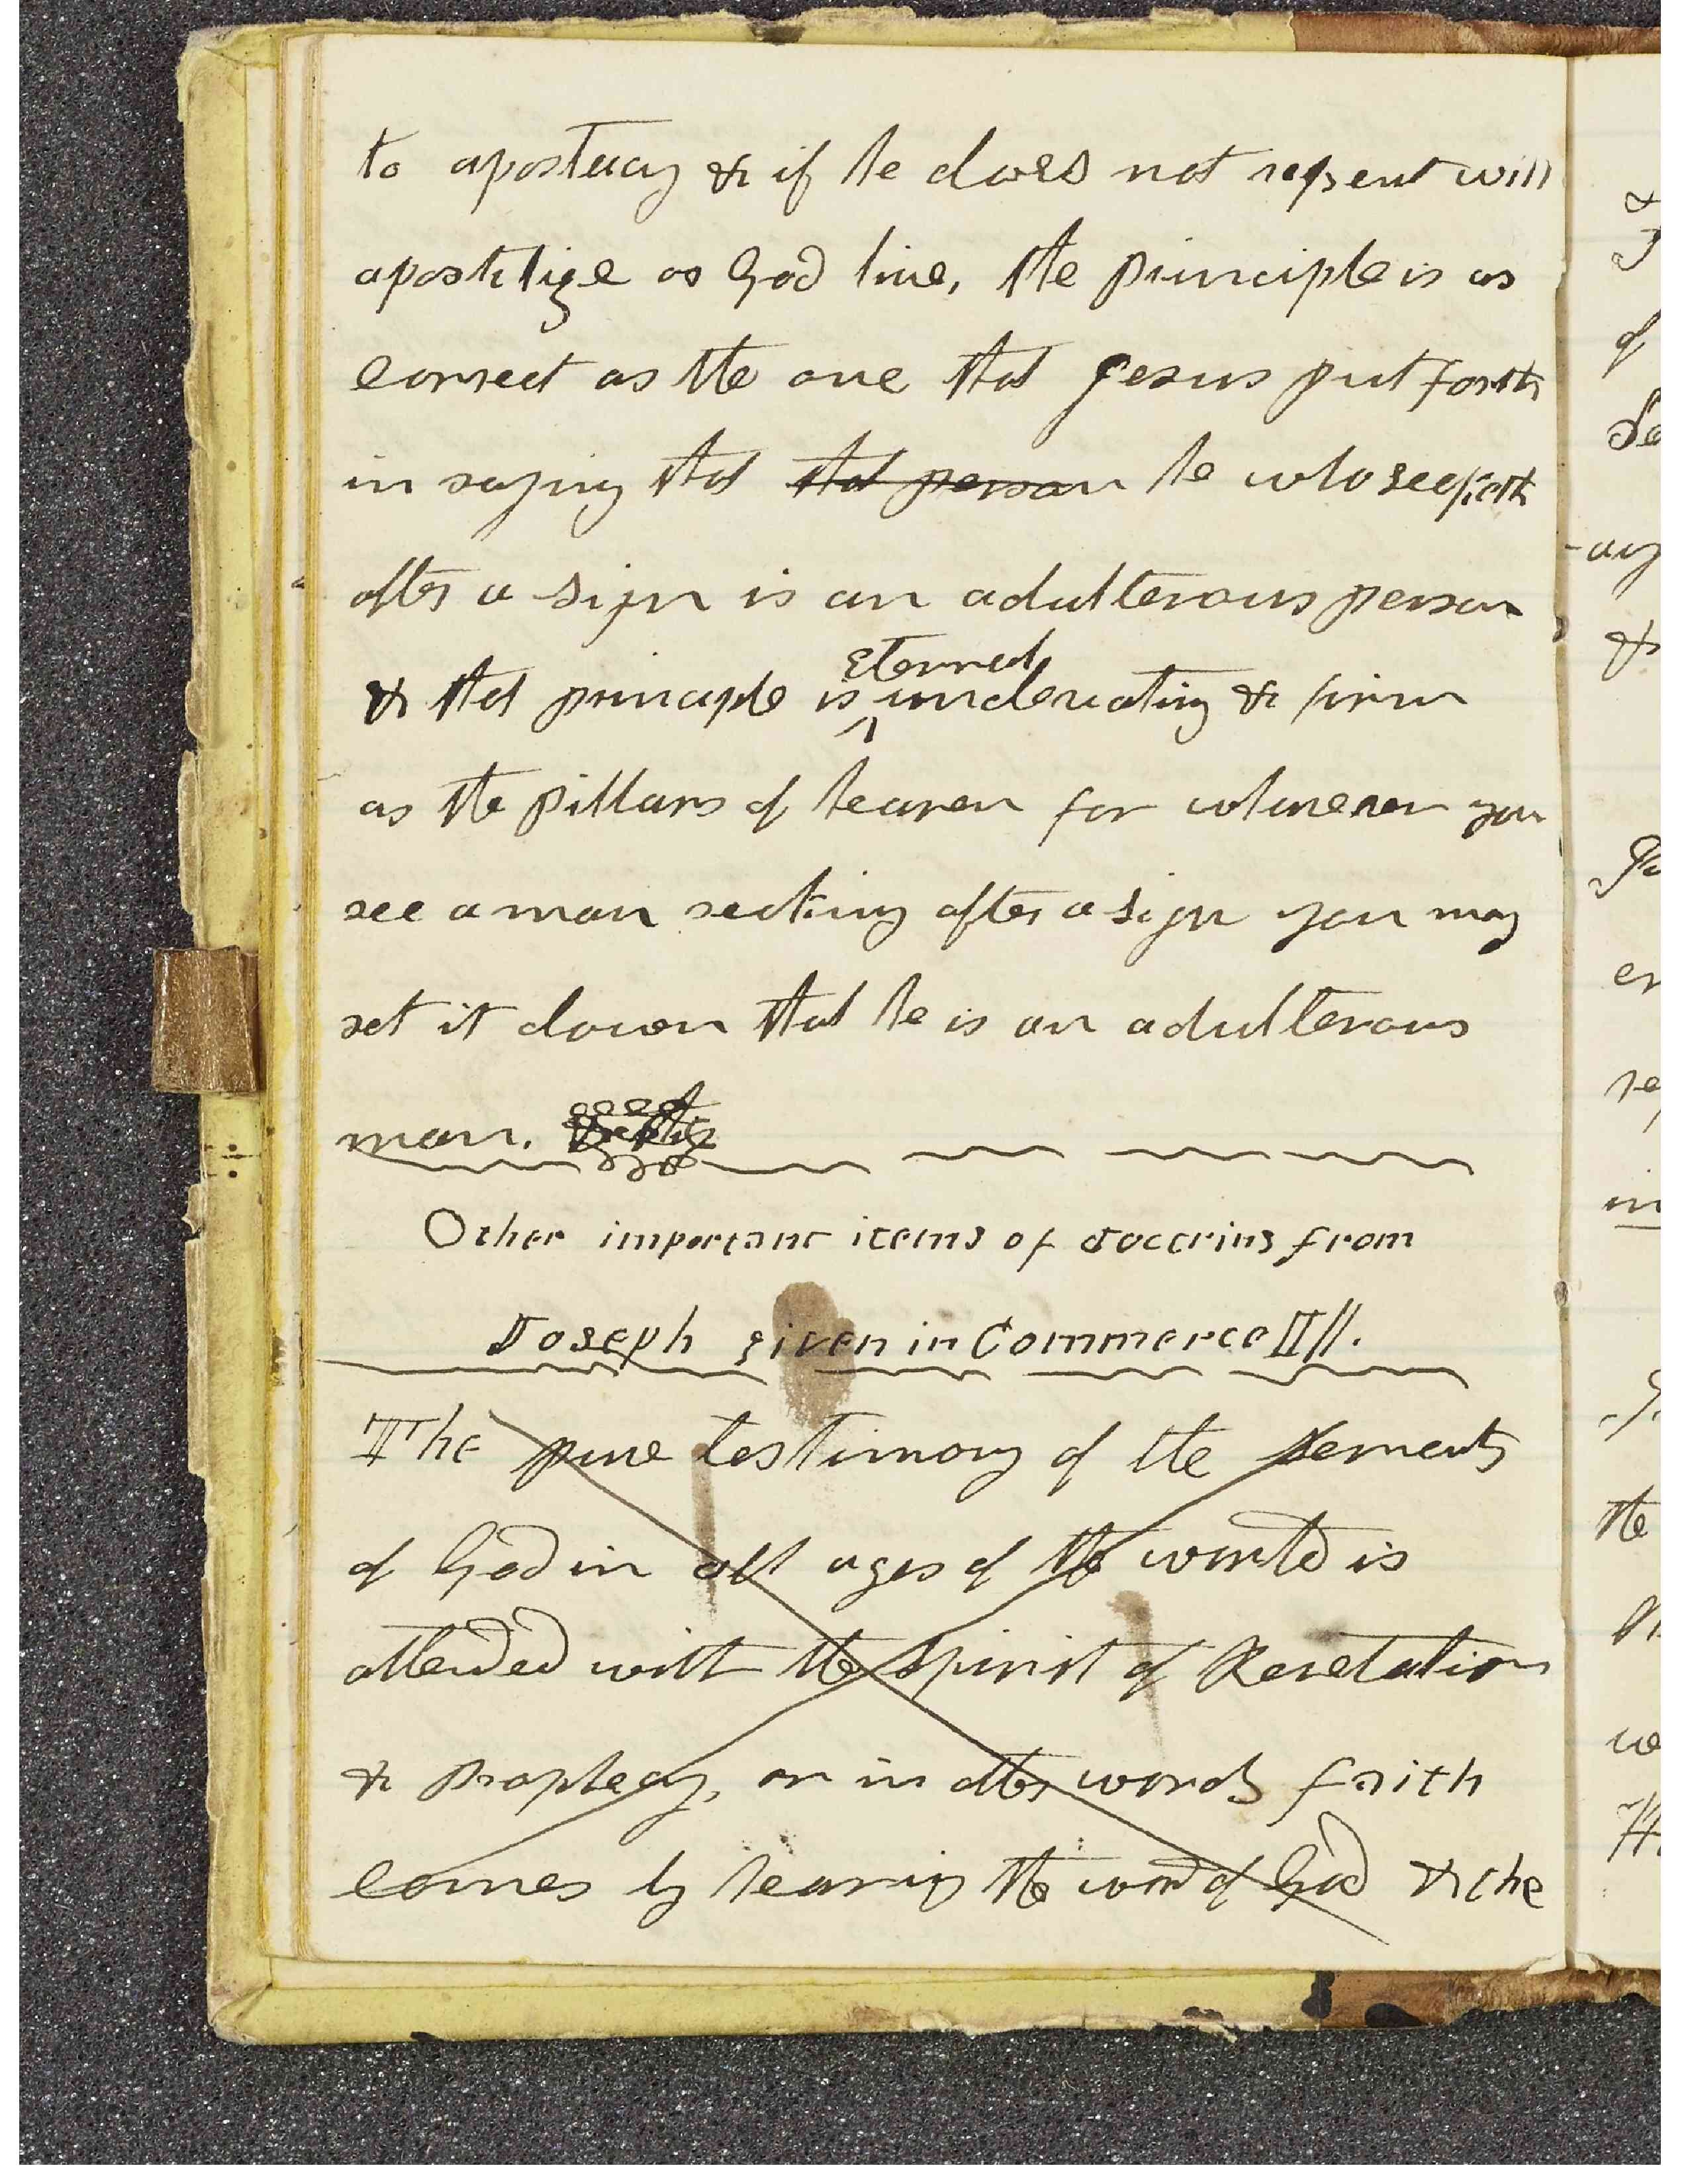 to apostacy & if he does not repent will
apostitize as God live, the principle is as
correct as the one that Jesus put forth
in saying that that person he who seeketh
after a sign is an adulterous person
eternal
& that principle is undeviating & firm
as the pillars of heaven for whenever you
see a man seeking after a sign you may
set it down that he is an adulterous
man.
Other important items of doctrins from
Joseph given in Commerce Ill.
The pure testimony of the servents
of God in all ages of the world is
attended with the spirit of Revelation
& Prophecy, or in other words faith
comes by hearing the word of God & the